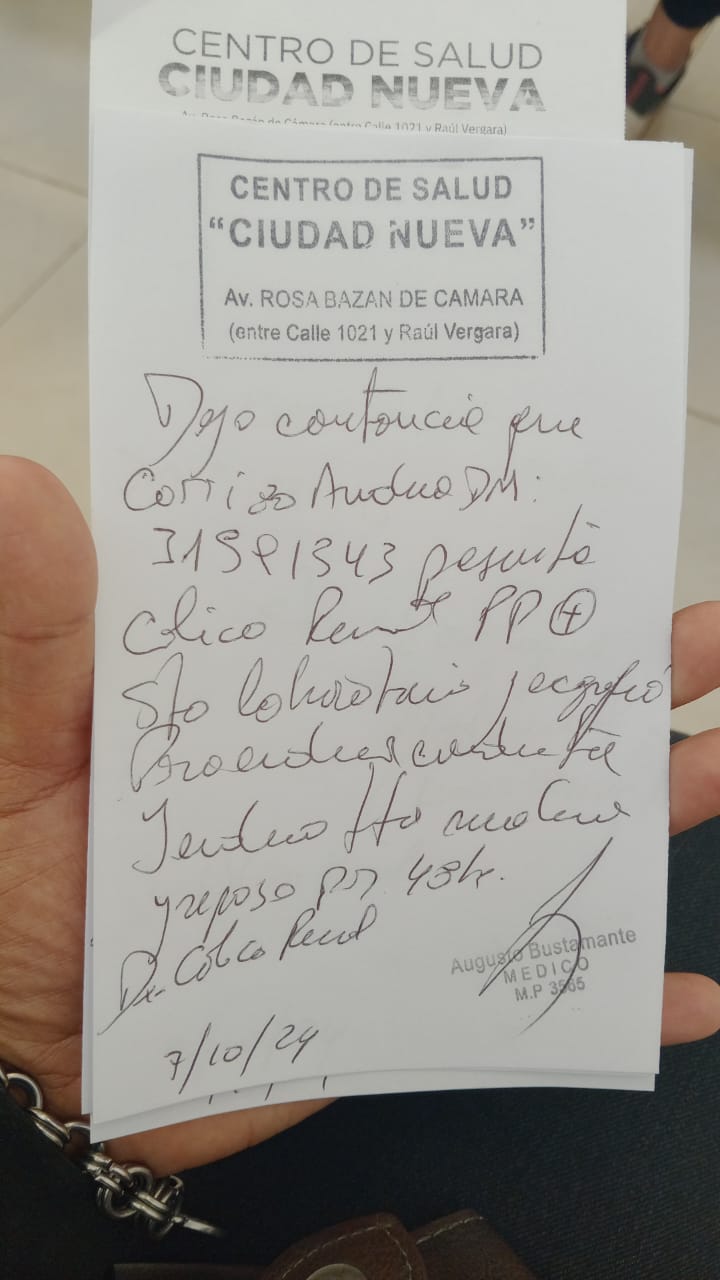 CENTRO DE SALUD
CIUDAD NUEVA
Av. Rosa Bazán de Cámara (entre Calle 1021 y Raúl Vergara)
CENTRO DE SALUD
"CIUDAD NUEVA"
Av. ROSA BAZAN DE CAMARA
(entre Calle 1021 y Raúl Vergara)
Dejo constancia que
Corrizo Andrea
presenta
Colico Renal PP ⊕
Sto laboratorio y ecografía
conducta
y reposo por 48h.
Dx- Colico Renal
Augusto Bustamante
MEDICO
M.P 3565
7/10/24